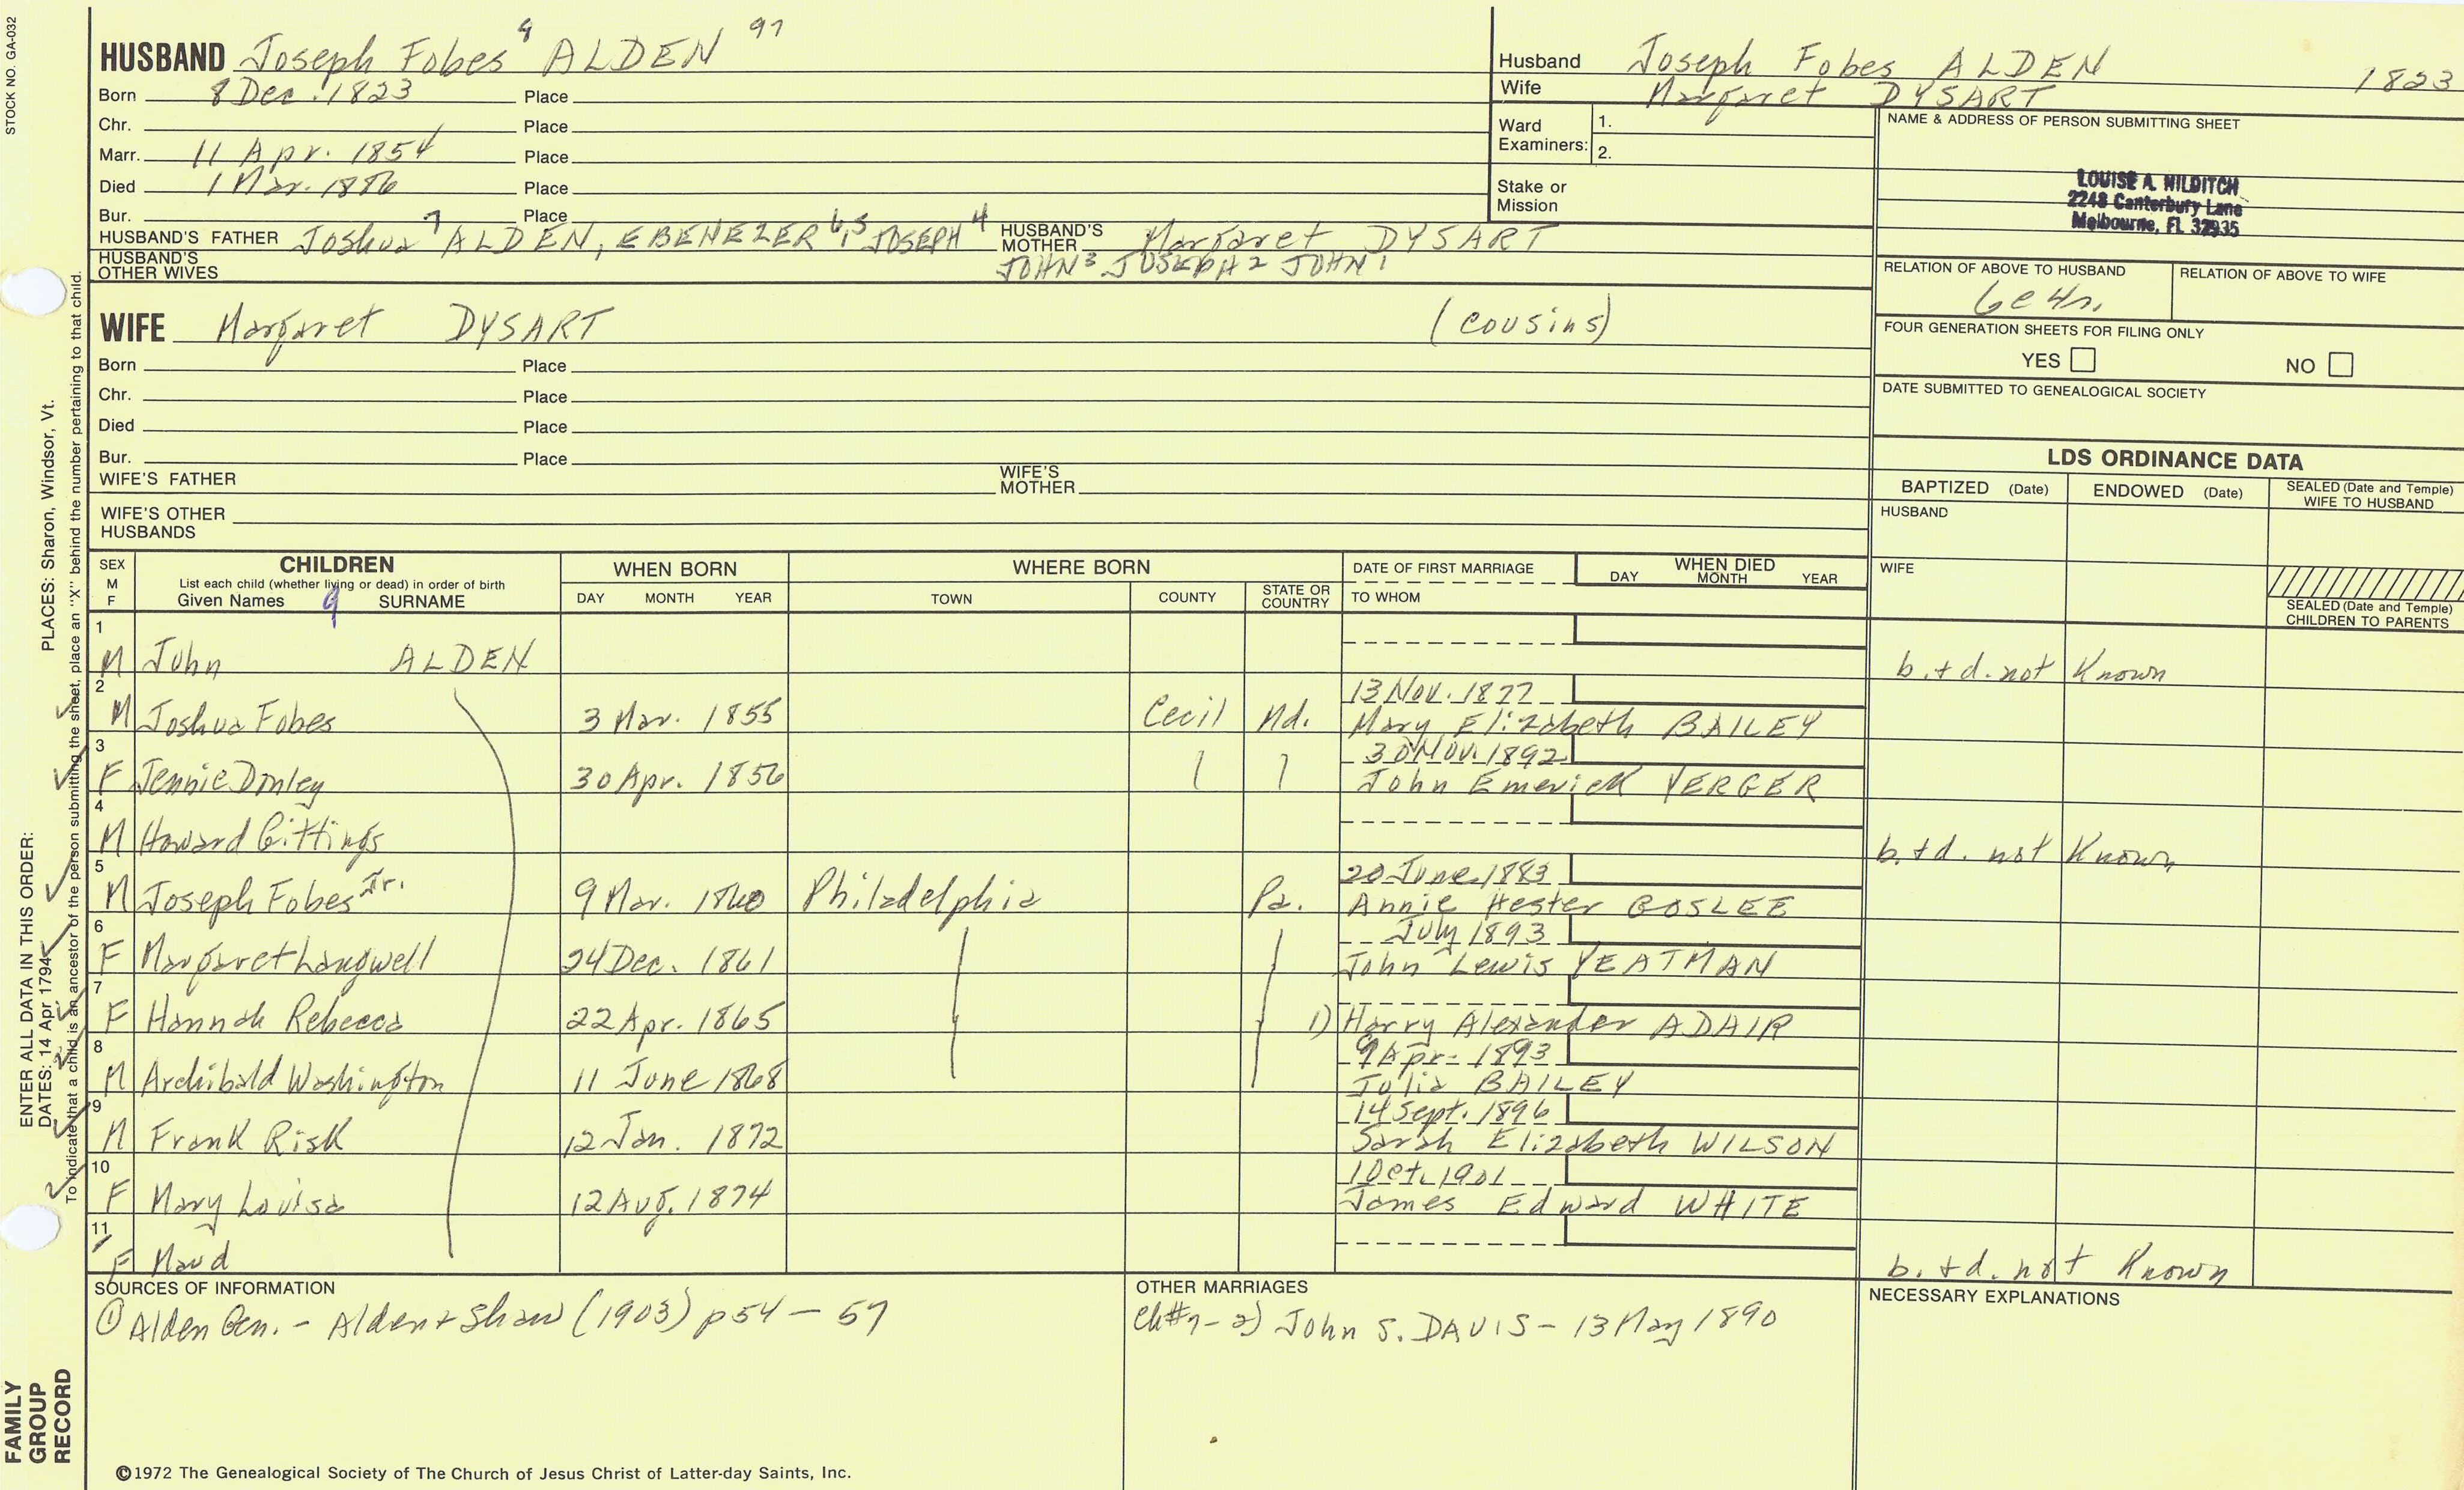 STOCK NO. GA-032
HUSBAND Joseph Fobes ALDEN 97
Born 8 Dec. 1823 Place
Chr. Place
Marr. 11 Apr. 1854 Place
Died 1 Mar. 1886 Place
Bur. Place
HUSBAND'S FATHER Joshua 7 ALDEN, EBENEZER 6,5 JOSEPH 4 HUSBAND'S MOTHER Margaret DYSART
HUSBAND'S OTHER WIVES JOHN 3 JOSEPH 2 JOHN 1
WIFE Margaret DYSART (cousins)
Born Place
Chr. Place
Died Place
Bur. Place
WIFE'S FATHER WIFE'S MOTHER
WIFE'S OTHER HUSBANDS
Husband Joseph Fobes ALDEN 1823
Wife Margaret DYSART
Ward Examiners: 1.
2.
Stake or Mission
NAME & ADDRESS OF PERSON SUBMITTING SHEET
LOUISE A. WILDITCH
2248 Canterbury Lane
Melbourne, FL 32935
RELATION OF ABOVE TO HUSBAND RELATION OF ABOVE TO WIFE
FOUR GENERATION SHEETS FOR FILING ONLY
YES NO
DATE SUBMITTED TO GENEALOGICAL SOCIETY
LDS ORDINANCE DATA
BAPTIZED (Date) ENDOWED (Date) SEALED (Date and Temple) WIFE TO HUSBAND
HUSBAND
WIFE
SEALED (Date and Temple) CHILDREN TO PARENTS
SEX M F CHILDREN WHEN BORN WHERE BORN DATE OF FIRST MARRIAGE WHEN DIED
List each child (whether living or dead) in order of birth
Given Names 9 SURNAME DAY MONTH YEAR TOWN COUNTY STATE OR COUNTRY TO WHOM DAY MONTH YEAR
1
M John ALDEN b. + d. not Known
2 13 Nov. 1877
M Joshua Fobes 3 Mar. 1855 Cecil Md. Mary Elizabeth BAILEY
3 30 Nov. 1892
F Jennie Donley 30 Apr. 1856 John Emerick YERGER
4
M Howard Gittings b. + d. not Known
5 20 June 1883
M Joseph Fobes Jr. 9 Mar. 1860 Philadelphia Pa. Annie Hester GOSLEE
6 July 1893
F Margaret Langwell 24 Dec. 1861 John Lewis YEATMAN
7
F Hannah Rebecca 22 Apr. 1865 1) Harry Alexander ADAIR
8 9 Apr- 1893
M Archibald Washington 11 June 1868 Julia BAILEY
9 14 Sept. 1896
M Frank Risk 12 Jan. 1872 Sarah Elizabeth WILSON
10 1 Oct. 1901
F Mary Louisa 12 Aug. 1874 James Edward WHITE
11
F Maud b. + d. not Known
SOURCES OF INFORMATION
① Alden Gen. - Alden + Shaw (1903) p 54 - 57
OTHER MARRIAGES
Ch #7 - 2) John S. DAVIS - 13 May 1890
NECESSARY EXPLANATIONS
©1972 The Genealogical Society of The Church of Jesus Christ of Latter-day Saints, Inc.
ENTER ALL DATA IN THIS ORDER:
DATES: 14 Apr 1794 PLACES: Sharon, Windsor, Vt.
To indicate that a child is an ancestor of the person submitting the sheet, place an "X" behind the number pertaining to that child.
FAMILY
GROUP
RECORD